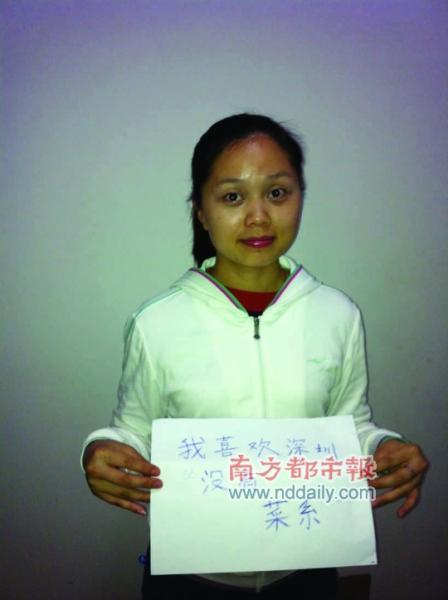 我喜欢深圳
没有
菜系
南方都市報
www.nddaily.com